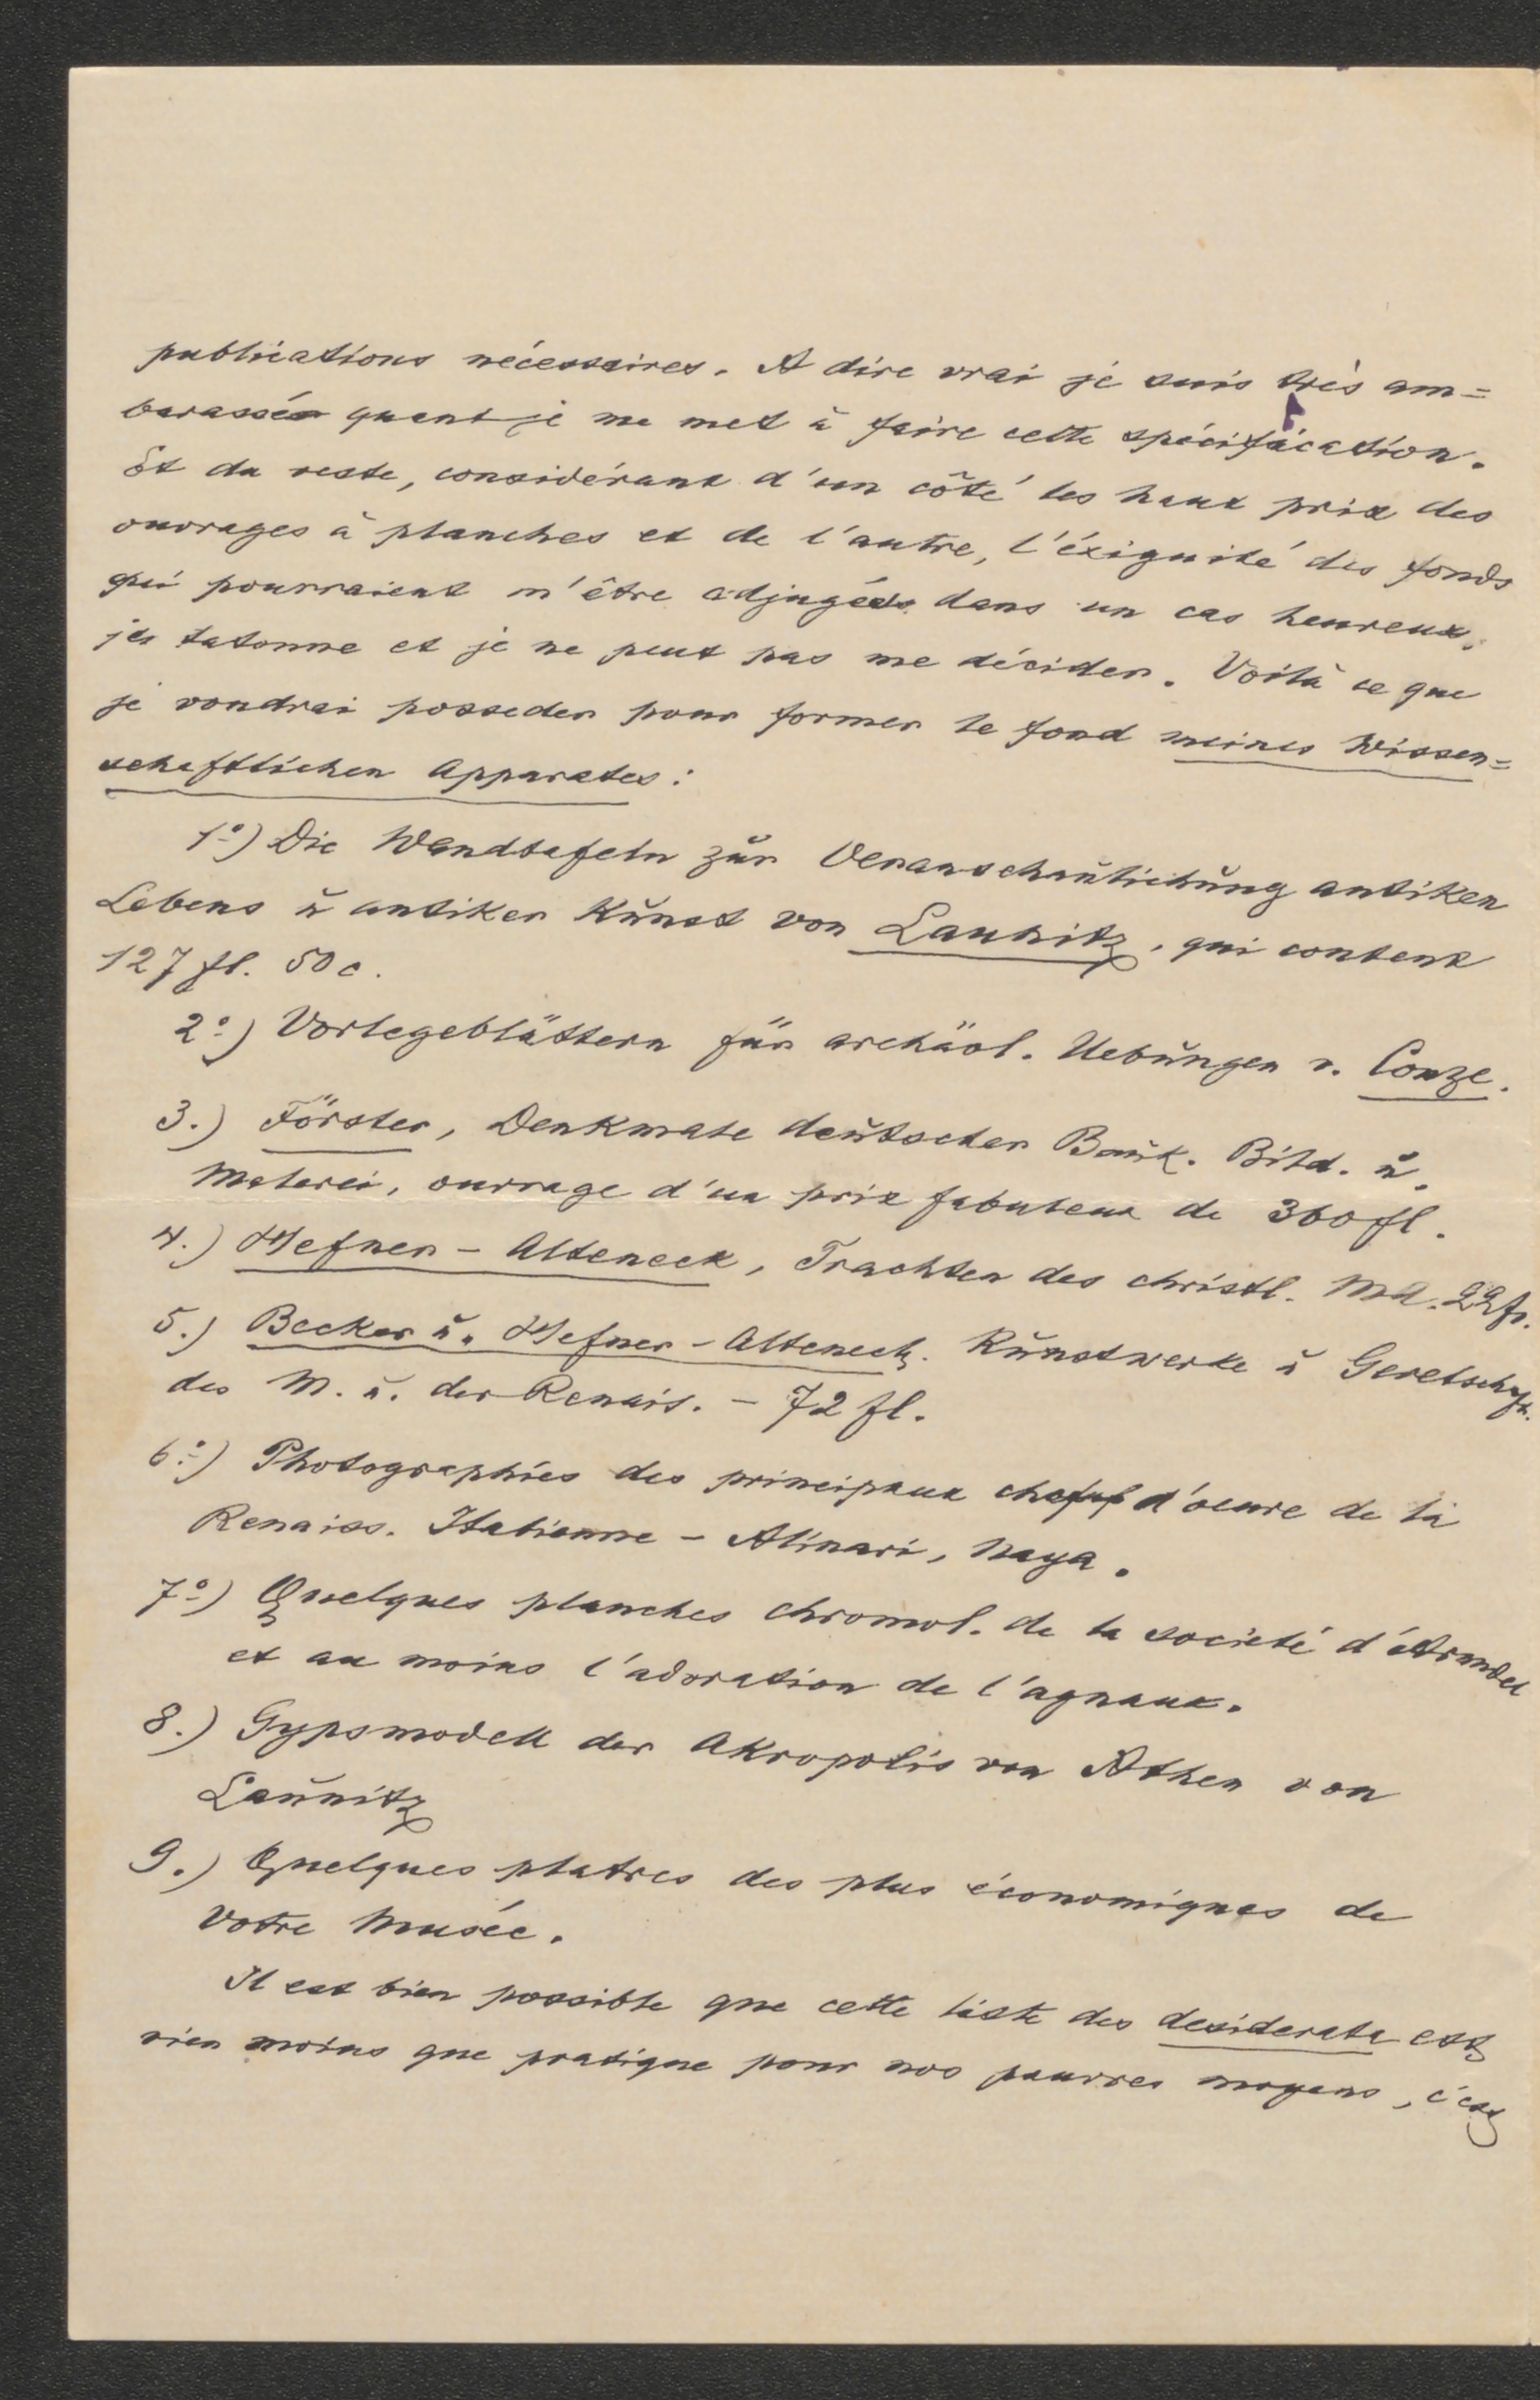 publications nécessaires. A dire vrai je suis très am=
barassé quant je me met à faire cette spécificacation.
Et du reste, considérant d'un côté les haut prix des
ouvrages à planches et de l'autre, l'éxiguité des fonds
qui pourraient m'être adjugés dans un cas heureux,
je tatonne et je ne peut pas me décider. Voilà ce que
je voudrai posseder pour former le fond meines Wissen=
schaftlichen Apparates:
1º) Die Wandtafeln zŭr Veranschaŭlichŭng antiken
Lebens ŭ antiker Kŭnst von Launitz, qui contenk
127 fl. 50 c.
2º) Vorlegeblättern für archäol. Uebŭngen v. Conze.
3.) Förster, Denkmale deŭtscher Baŭk. Bild. ŭ.
Malerei, ouvrage d'un prix fabuleux de 360 fl.
4.) Hefner - Alteneck, Trachten des christl. MA. 22 fr.
5.) Becker ŭ. Hefner - Alteneck. Kŭnstwerke ŭ Geretschft.
des M. ŭ. der Renais. - 72 fl.
6º) Photographies des principaux chefs d'oeuvre de la
Renaiss. Italienne - Alinari, Naya.
7º) Quelques planches chromol. de la societé d'Arundel
et au moins l'adoration de l'agnaux.
8.) Gypsmodell der Akropolis von Athen von
Laŭnitz
9.) Quelques platres des plus économiques de
Votre Musée.
Il est bien possible que cette liste des desiderata est
rien moins que pratique pour nos pauvres moyens, c'est